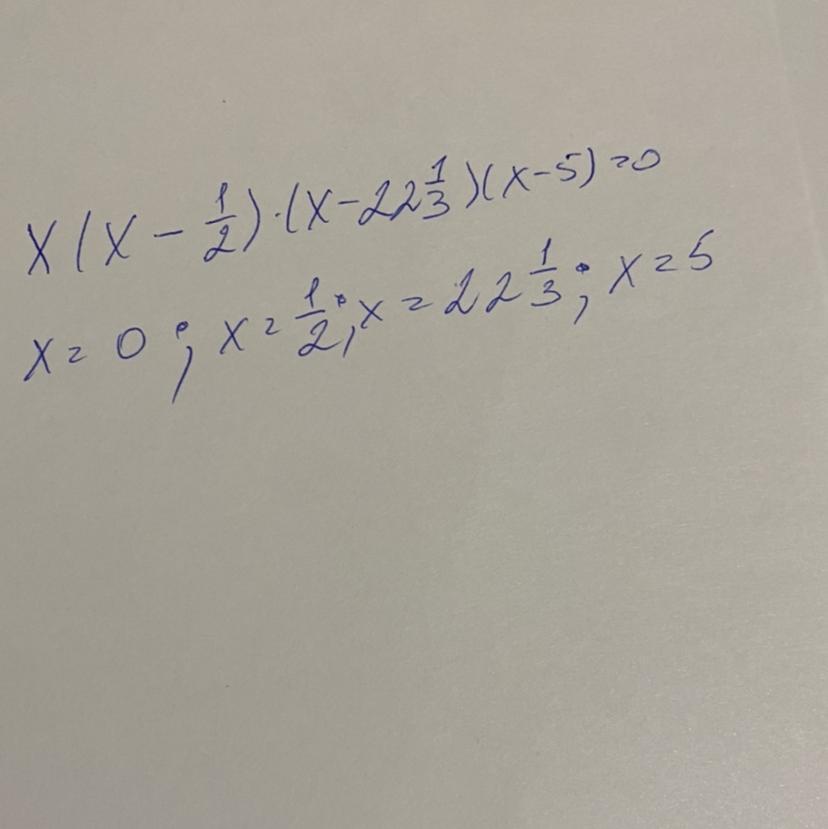 x(x - 1/2)·(x-22 1/3)(x-5)=0
x=0; x=1/2; x=22 1/3; x=5